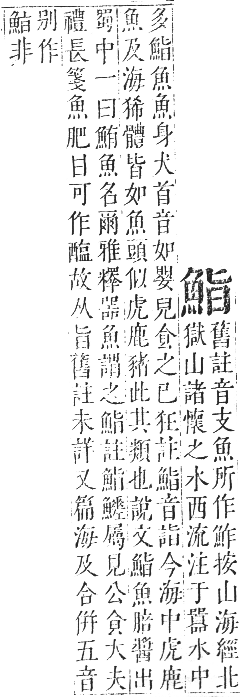 鮨
舊註音支魚所作鮓按山海經北
嶽山諸懷之水西流注于囂水中
多鮨魚魚身犬首音如嬰兒食之已狂註鮨音詣今海中虎鹿
魚及海狶體皆如魚頭似虎鹿豬此其類也說文鮨魚䏽醬出
蜀中一曰鮪魚名爾雅釋器魚謂之鮨註鮨屬見公食大夫
禮長箋魚肥甘可作醢故从旨舊註未詳又篇海及合併五音
別作鮎非